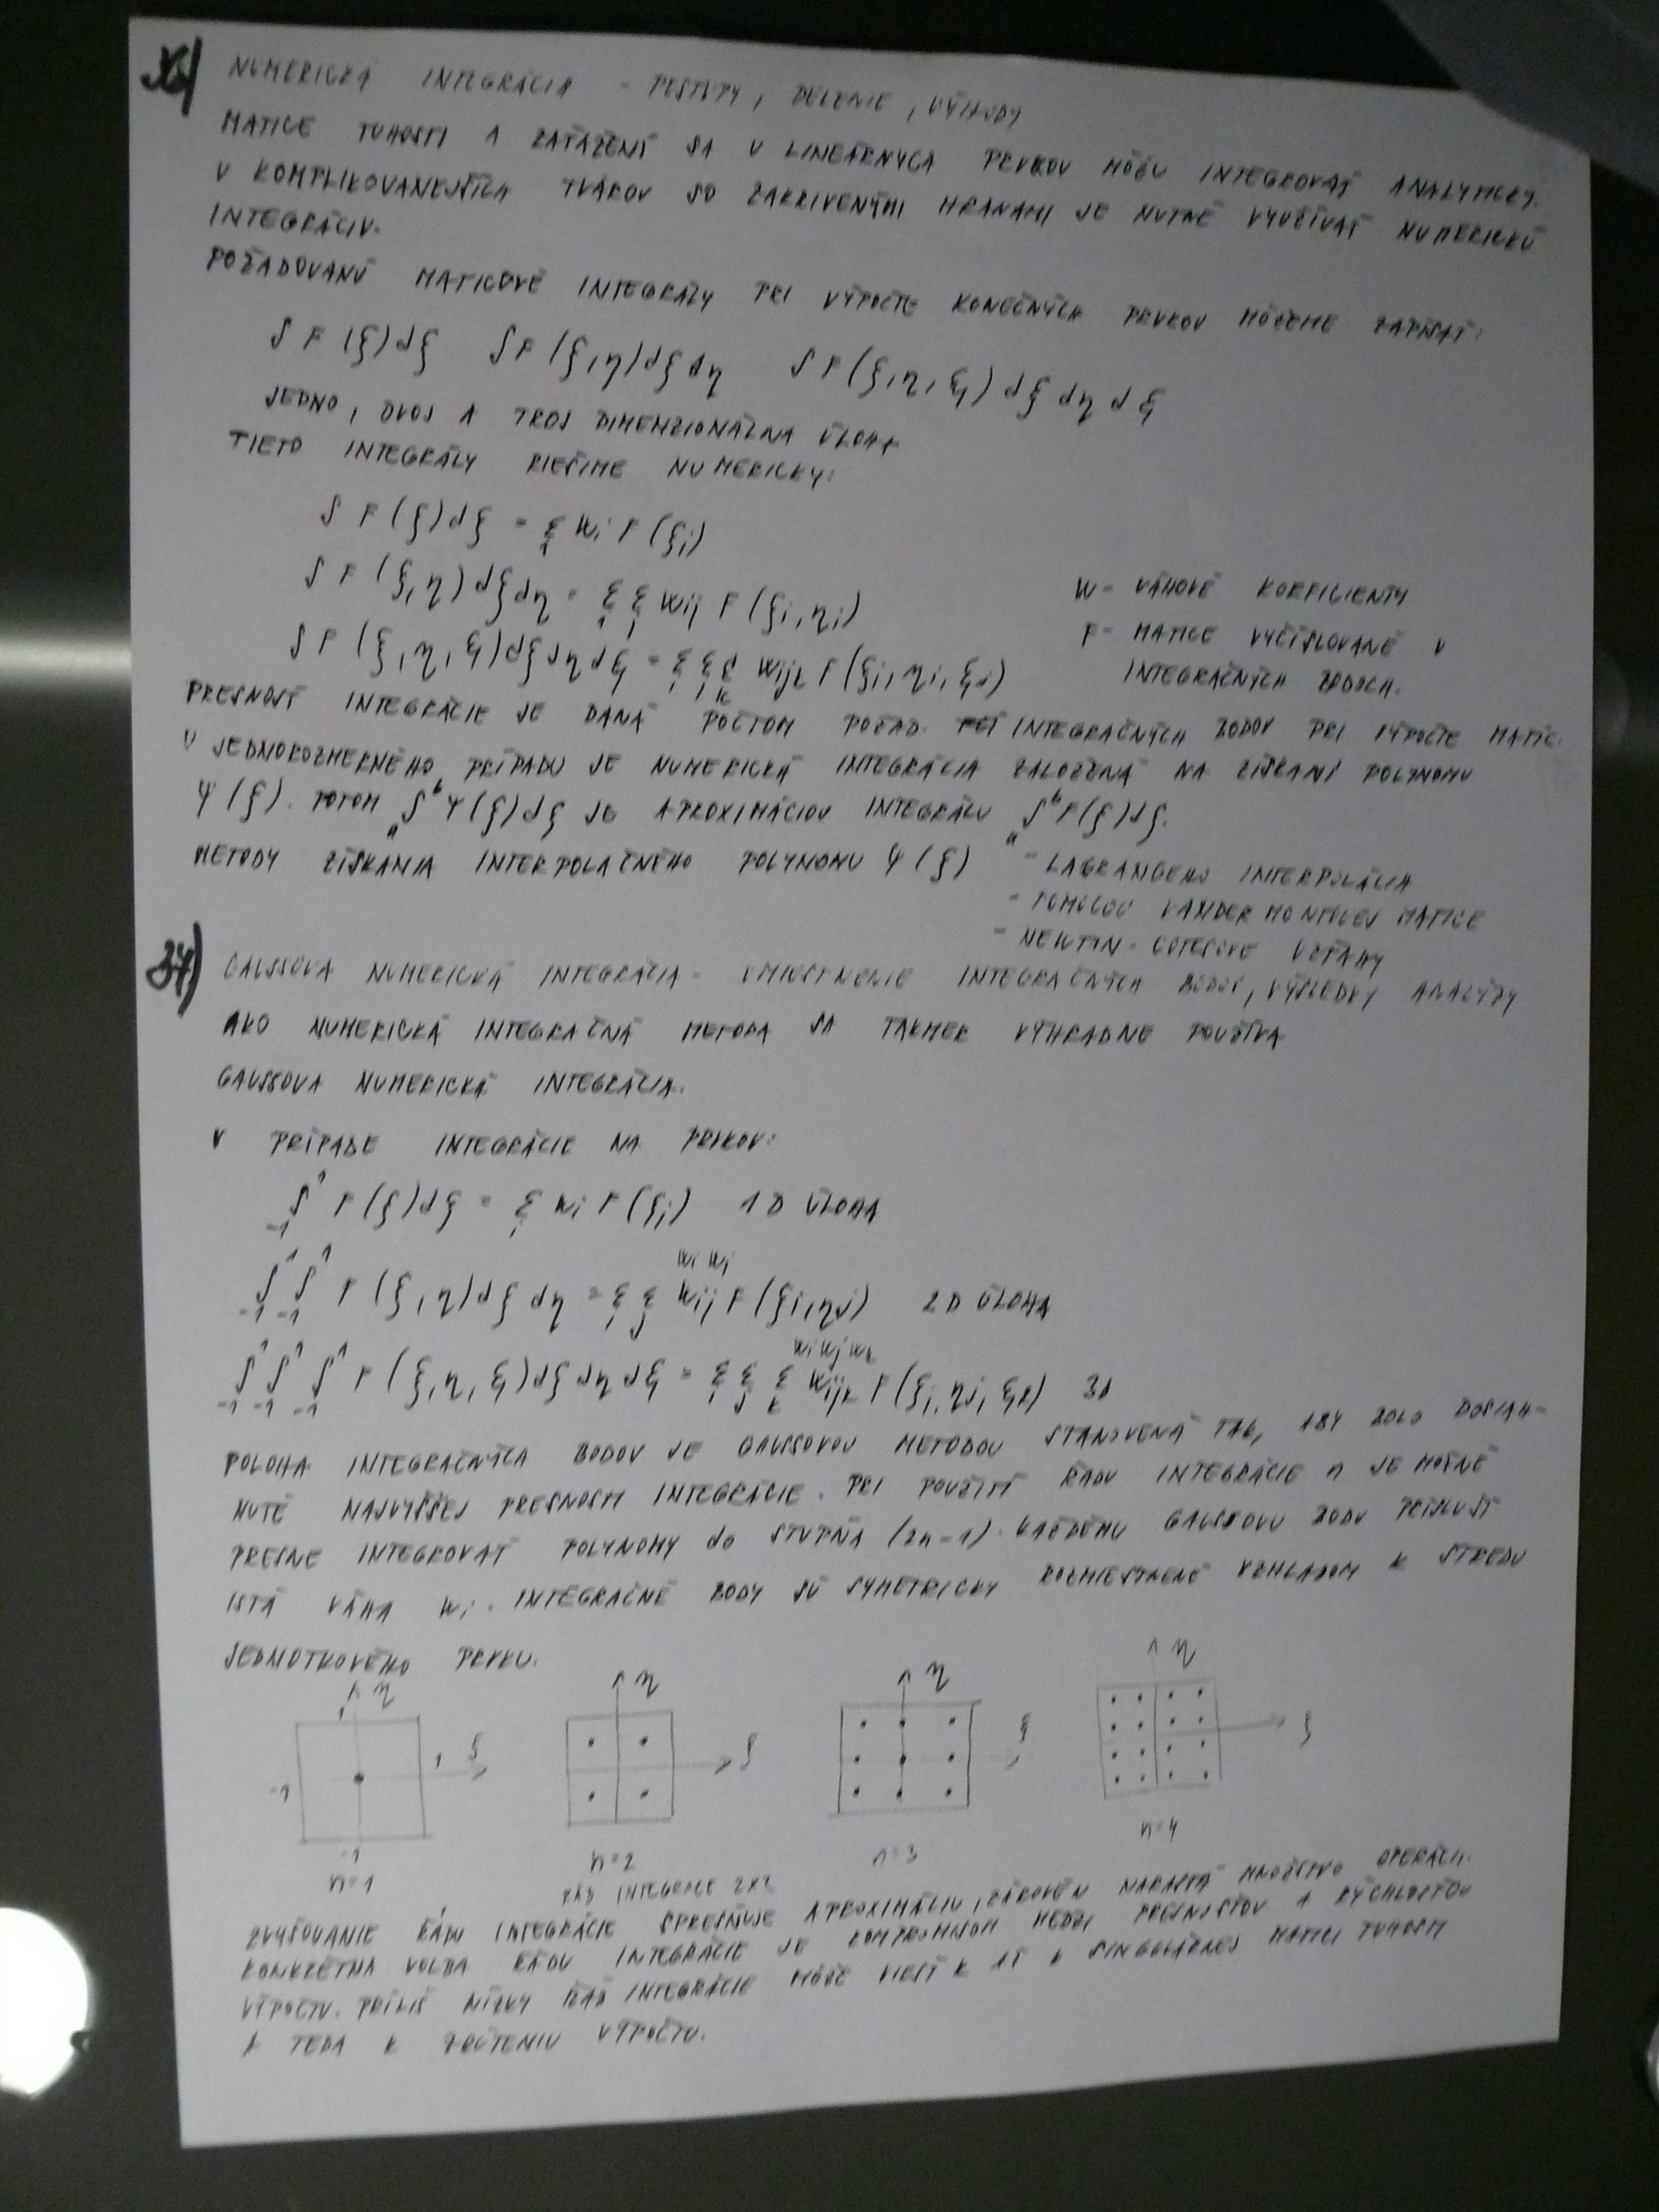 36) NUMERICKÁ INTEGRÁCIA - POSTUPY, DELENIE, VÝHODY
MATICE TUHOSTI A ZAŤAŽENÍ SA U LINEÁRNYCH PRVKOV MÔŽU INTEGROVAŤ ANALYTICKY.
U KOMPLIKOVANEJŠÍCH TVAROV SO ZAKRIVENÝMI HRANAMI JE NUTNÉ VYUŽÍVAŤ NUMERICKÚ
INTEGRÁCIU.
POŽADOVANÚ MATICOVÉ INTEGRÁLY PRI VÝPOČTE KONEČNÝCH PRVKOV MÔŽEME ZAPÍSAŤ:
∫ F (ξ) dξ ∫ F (ξ, η) dξ dη ∫ F (ξ, η, ξ) dξ dη dξ
JEDNO, DVOJ A TROJ DIMENZIONÁLNA ÚLOHA
TIETO INTEGRÁLY RIEŠIME NUMERICKY:
∫ F (ξ) dξ = Σ_i Wi F (ξi)
∫ F (ξ, η) dξ dη = Σ_i Σ_j Wij F (ξi, ηi)
W - VÁHOVÉ KOEFICIENTY
∫ F (ξ, η, ξ) dξ dη dξ = Σ_i Σ_j Σ_k Wijk F (ξi, ηi, ξi)
F - MATICE VYČÍSLOVANÉ V
INTEGRAČNÝCH BODOCH.
PRESNOSŤ INTEGRÁCIE JE DANÁ POČTOM POŽAD. INTEGRAČNÝCH BODOV PRI VÝPOČTE MATÍC.
U JEDNOROZMERNÉHO PRÍPADU JE NUMERICKÁ INTEGRÁCIA ZALOŽENÁ NA ZÍSKANÍ POLYNOMU
Ψ (ξ). POTOM a∫b Ψ (ξ) dξ JE APROXIMÁCIOU INTEGRÁLU a∫b F (ξ) dξ.
METODY ZÍSKANIA INTERPOLAČNÉHO POLYNOMU Ψ (ξ) - LAGRANGEHO INTERPOLÁCIA
- POMOCOU VANDER MONTOVEJ MATICE
- NEWTON-COTESOVE VZŤAHY
37) GAUSSOVA NUMERICKÁ INTEGRÁCIA - UMIESTNENIE INTEGRAČNÝCH BODOV, VÝSLEDKY ANALÝZY
AKO NUMERICKÁ INTEGRAČNÁ METODA SA TAKMER VÝHRADNE POUŽÍVA
GAUSSOVA NUMERICKÁ INTEGRÁCIA.
V PRÍPADE INTEGRÁCIE NA PRVKOV:
-1∫1 F (ξ) dξ = Σ_i Wi F (ξi) 1D ÚLOHA
Wi Wj
-1∫1 -1∫1 F (ξ, η) dξ dη = Σ_i Σ_j Wij F (ξi, ηj) 2D ÚLOHA
Wi Wj Wk
-1∫1 -1∫1 -1∫1 F (ξ, η, ξ) dξ dη dξ = Σ_i Σ_j Σ_k Wijk F (ξi, ηj, ξk) 3D
POLOHA INTEGRAČNÝCH BODOV JE GAUSSOVOU METODOU STANOVENÁ TAK, ABY BOLO DOSIAH-
NUTÉ NAJVYŠŠEJ PRESNOSTI INTEGRÁCIE. PRI POUŽITÍ RÁDU INTEGRÁCIE n JE MOŽNÉ
PRESNE INTEGROVAŤ POLYNOMY do STUPŇA (2n-1). KAŽDÉMU GAUSSOVU BODU PRÍSLUŠÍ
ISTÁ VÁHA Wi. INTEGRAČNÉ BODY SÚ SYMETRICKY ROZMIESTNENÉ VZHĽADOM K STREDU
JEDNOTKOVÉHO PRVKU.
η η η η
1
1 ξ ξ ξ ξ
-1
-1
n=1 n=2 n=3 n=4
RÁD INTEGRACE 2X2
ZVYŠOVANIE RÁDU INTEGRÁCIE SPRESŇUJE APROXIMÁCIU, ZÁROVEŇ NARASTÁ MNOŽSTVO OPERÁCII.
KONKRÉTNA VOĽBA RÁDU INTEGRÁCIE JE KOMPROMISOM MEDZI PRESNOSŤOU A RÝCHLOSŤOU
VÝPOČTU. PRÍLIŠ NÍZKY RÁD INTEGRÁCIE MÔŽE VIESŤ K SINGULÁRNEJ MATICI TUHOSTI
A TEDA K ZRÚTENIU VÝPOČTU.